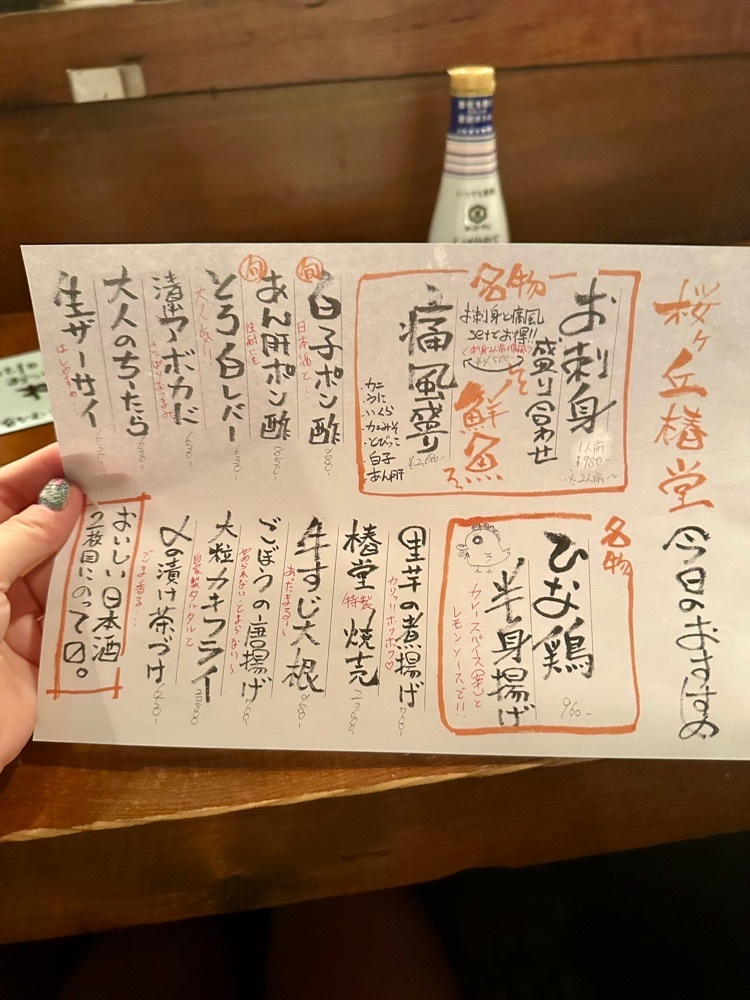 桜ヶ丘椿堂
今日のおすすめ
名物
お刺身
盛り合わせ
1人前
¥980-
※2人前〜
お刺身と痛風
setでお得!!
鮮魚
痛風盛り
¥2,600-
カニ
うに
いくら
カニみそ
とびっこ
白子
あん肝
旬
白子ポン酢
日本酒と…
880-
旬
あん肝ポン酢
850-
とろ白レバー
大人気!!
630-
漬アボカド
大人のちーたら
生ザーサイ
はじめに
名物
ひな鶏
半身揚げ
960-
カレースパイス(薬)と
レモンソースで!!
里芋の煮揚げ
カリッ!!ホクホク♡
椿堂特製焼売
牛すじ大根
あたまる〜
ごぼうの唐揚げ
やめられないとまらない〜
大粒カキフライ
自家製タルタルと
〆の漬け茶づけ
ごま香る…
おいしい日本酒
2枚目にのって〼。